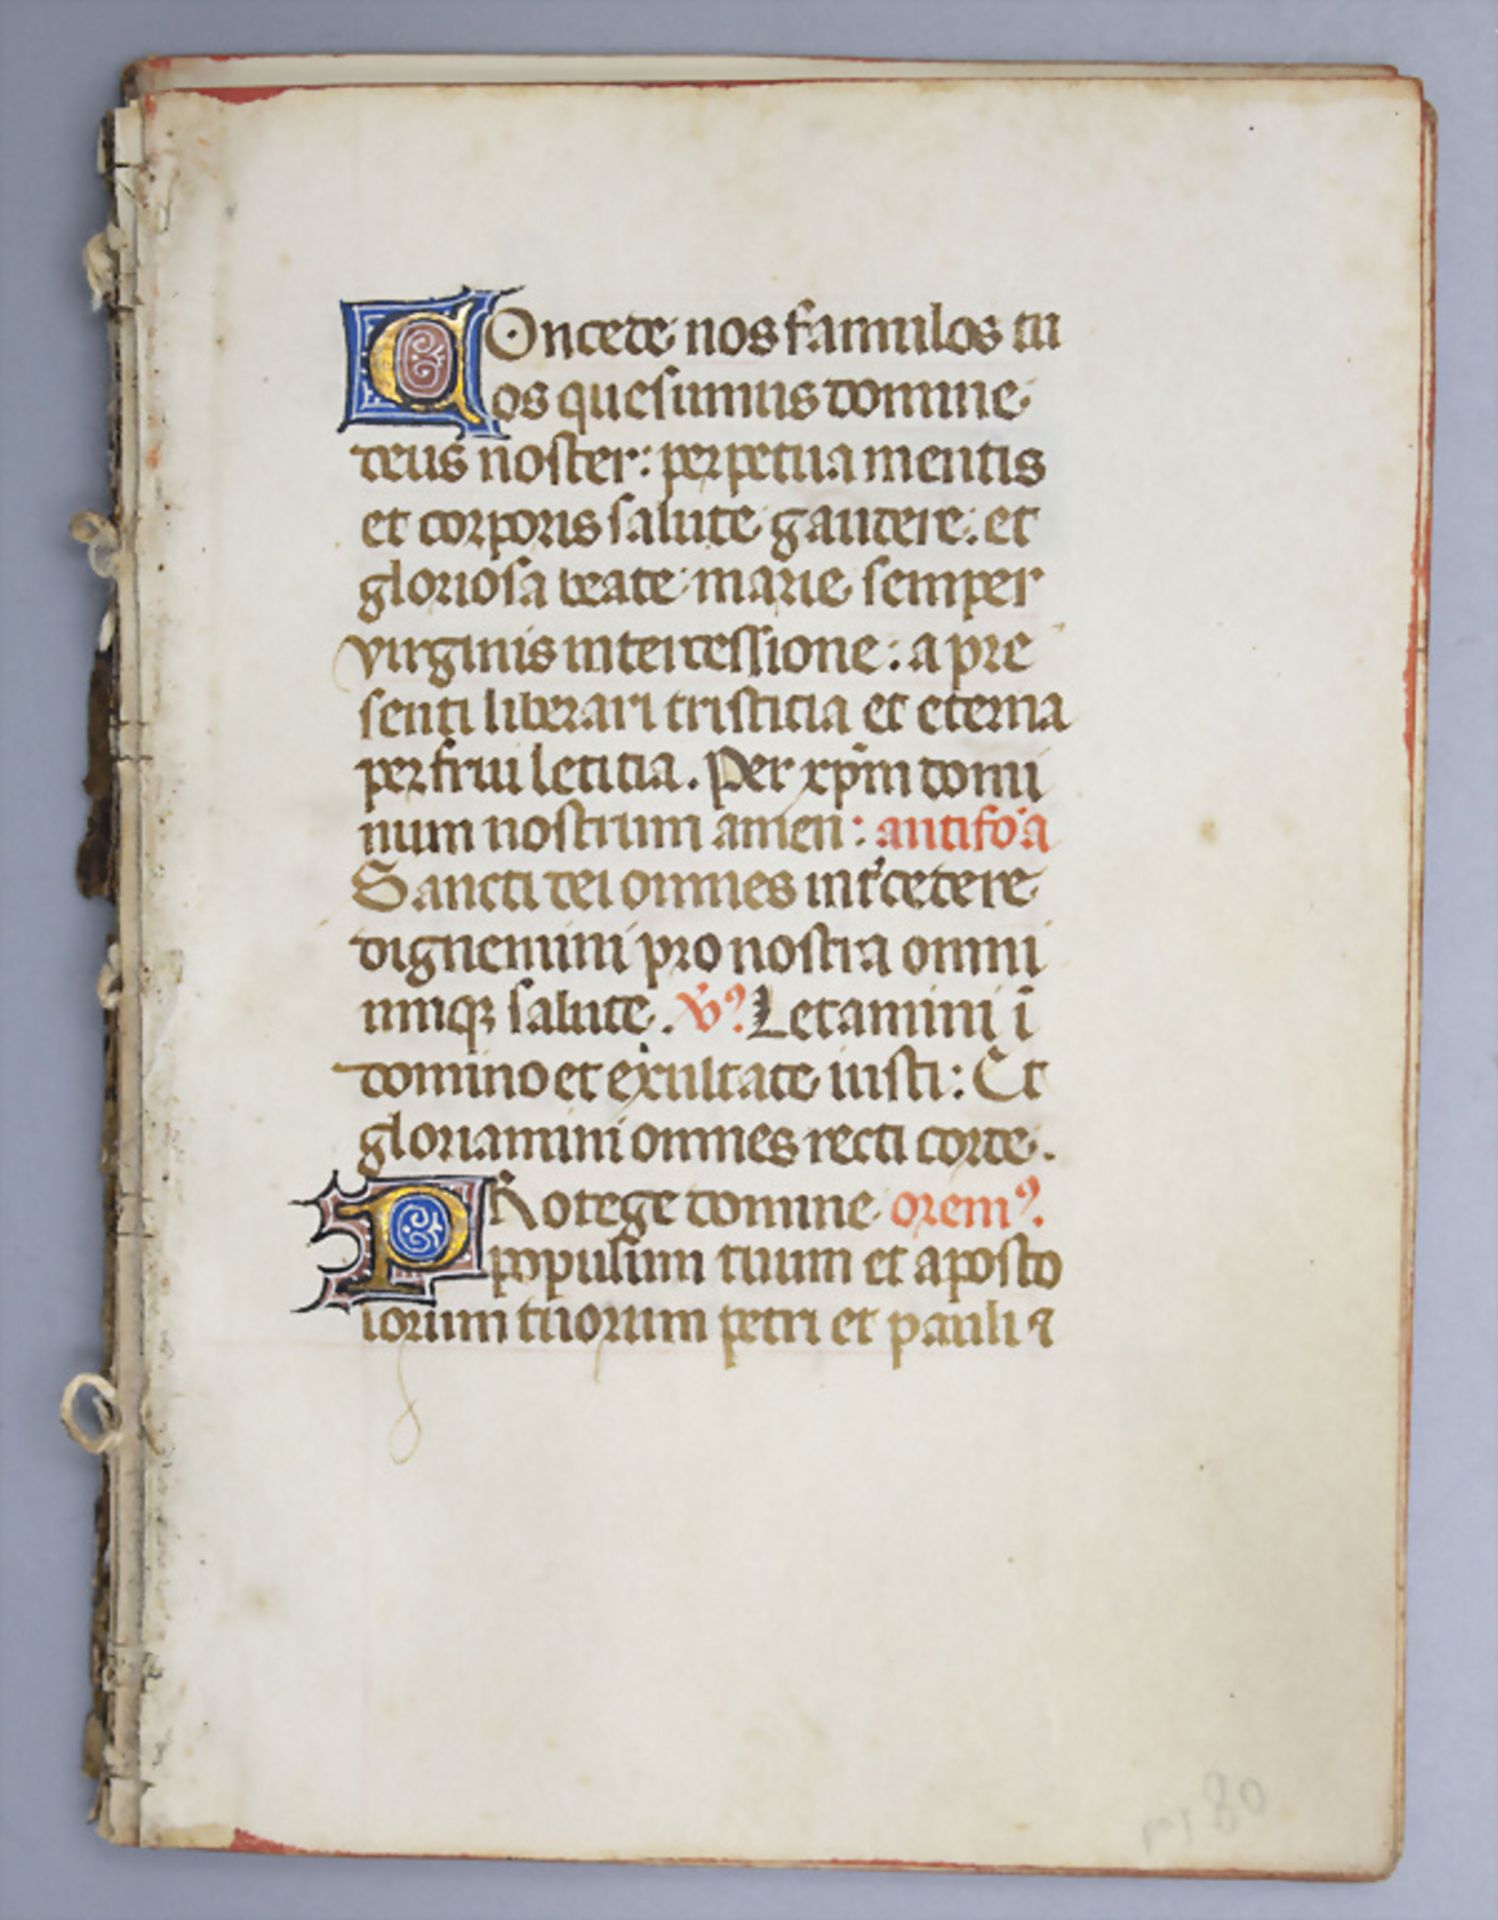 COncede nos famulos tu
os quesumus domine
deus noster: perpetua mentis
et corporis salute gaudere: et
gloriosa beate marie semper
virginis intercessione: a pre
senti liberari tristicia et eterna
perfrui leticia. Per xp̄m domi
num nostrum amen: antifōa
Sancti dei omnes int'cedere
dignemini pro nostra omni
umqꝫ salute. V̓ꝰ Letamini ī
domino et exultate iusti: Et
gloriamini omnes recti corde.
PRotege domine oremꝰ.
populum tuum et aposto
lorum tuorum petri et pauli ⁊
ms 80